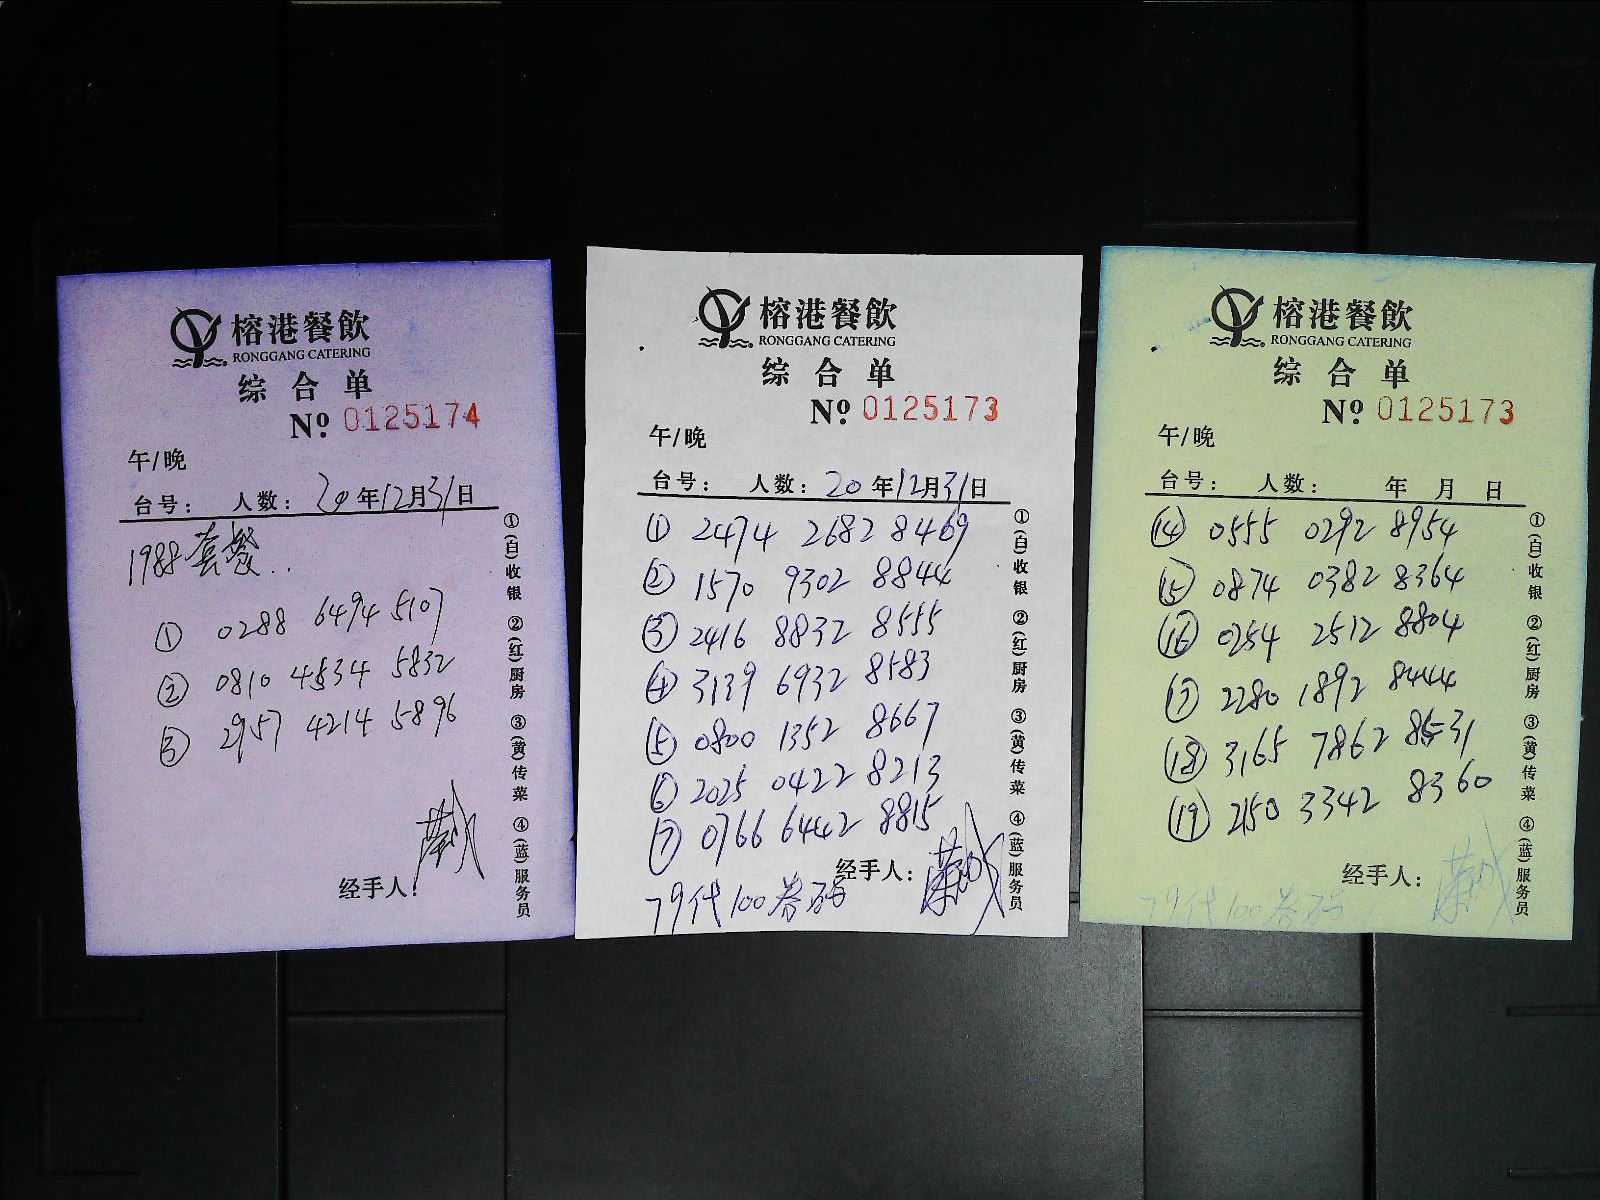 榕港餐飲
RONGGANG CATERING
综合单
Nº 0125174
午/晚
台号: 人数: 20年12月31日
1988套餐..
① 0288 6494 5107
② 0810 4534 5832
③ 2957 4214 5896
经手人:
①(白)收银 ②(红)厨房 ③(黄)传菜 ④(蓝)服务员
榕港餐飲
RONGGANG CATERING
综合单
Nº 0125173
午/晚
台号: 人数: 20年12月31日
① 2474 2682 8469
② 1570 9302 8844
③ 2416 8832 8555
④ 3139 6932 8583
⑤ 0800 1352 8667
⑥ 2025 0422 8213
⑦ 0766 6442 8815
经手人:
79代100券码
①(白)收银 ②(红)厨房 ③(黄)传菜 ④(蓝)服务员
榕港餐飲
RONGGANG CATERING
综合单
Nº 0125173
午/晚
台号: 人数: 年 月 日
⑭ 0555 0292 8954
⑮ 0874 0382 8364
⑯ 0254 2512 8804
⑰ 2280 1892 8444
⑱ 3165 7862 8531
⑲ 2150 3342 8360
经手人:
79代100券码
①(白)收银 ②(红)厨房 ③(黄)传菜 ④(蓝)服务员